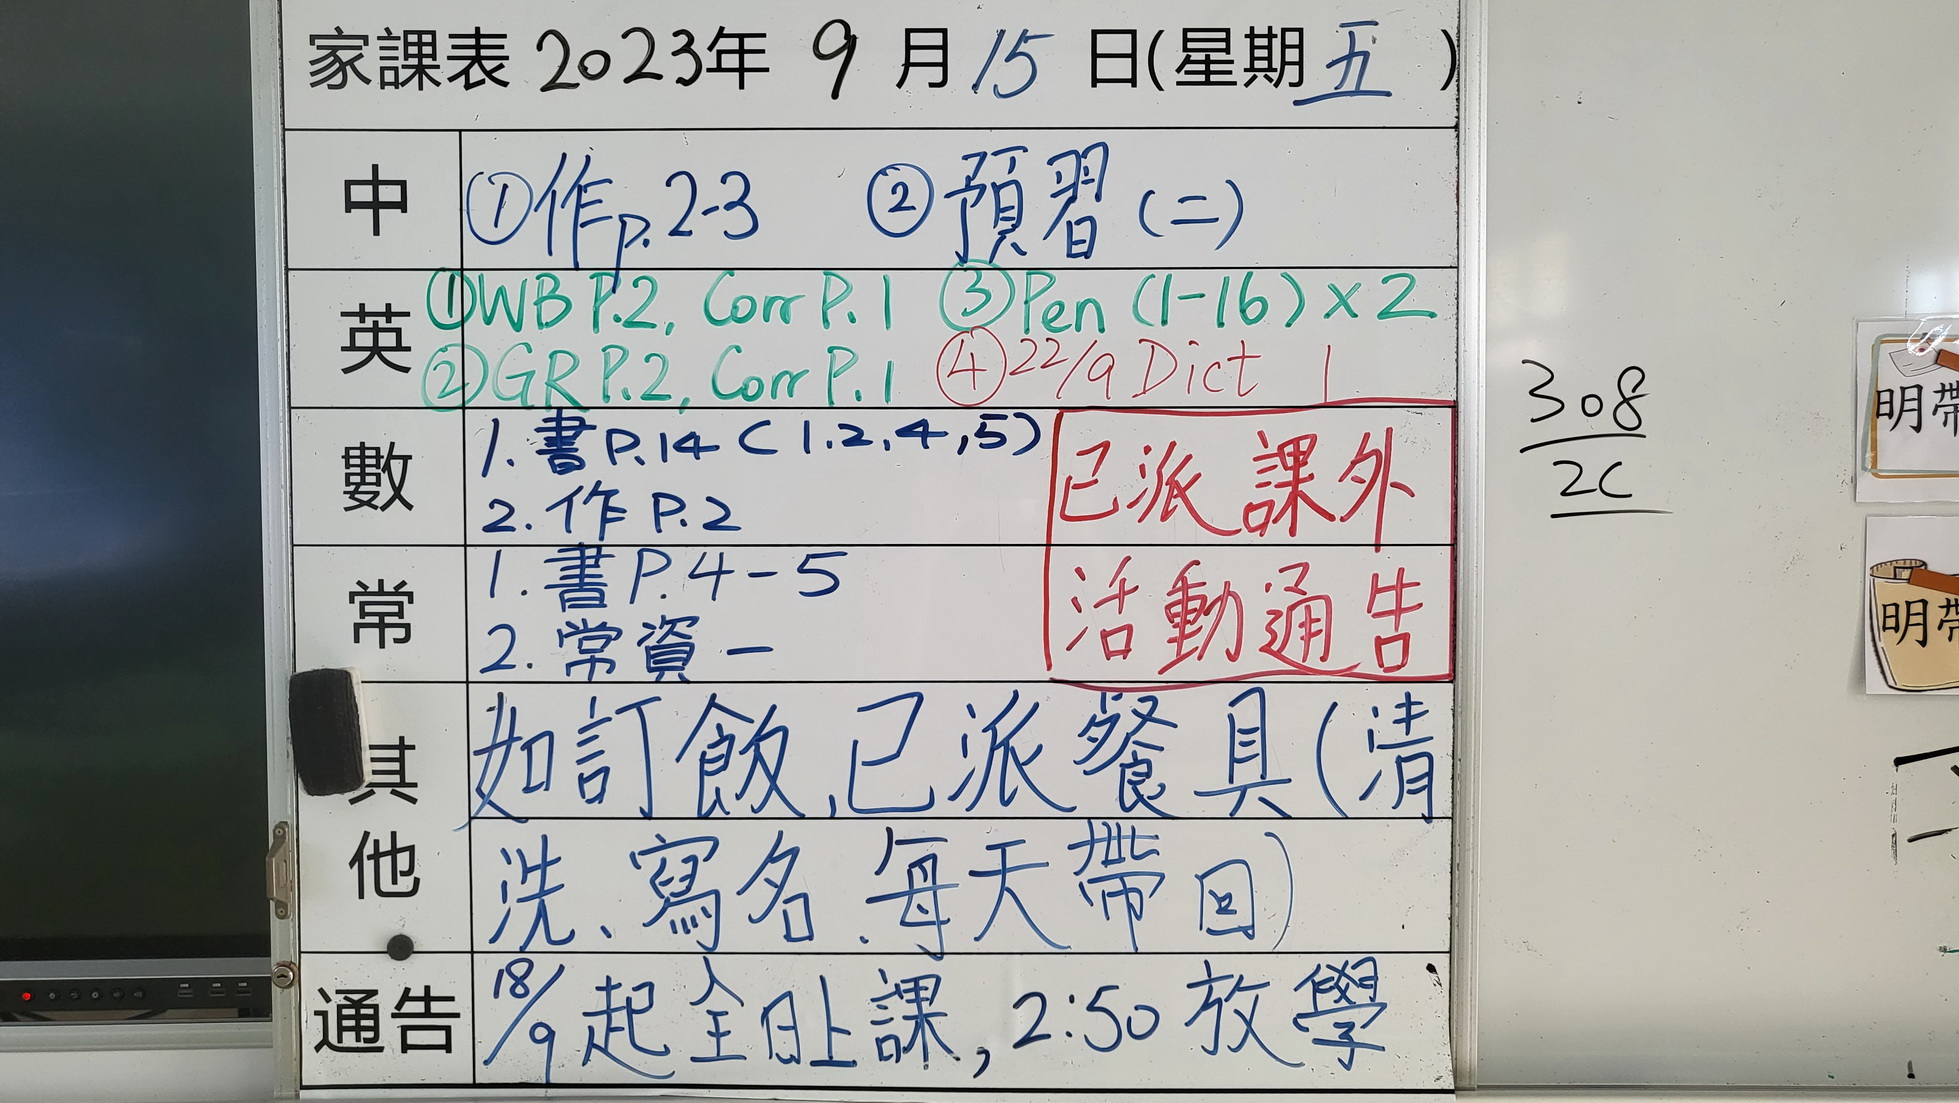 家課表 2023年 9 月 15 日(星期 五 )
中 ①作p.2-3 ②預習(二)
英 ①WB P.2, Corr P.1 ③Pen (1-16) x 2
②GR P.2, Corr P.1 ④22/9 Dict 1
數 1. 書P.14 (1.2,4,5)
2. 作 P.2
常 1. 書P.4-5
2. 常資一
已派課外
活動通告
其他 如訂飯,已派餐具(清
洗、寫名、每天帶回)
通告 18/9起全日上課, 2:50 放學
308
2C
明帶
明帶